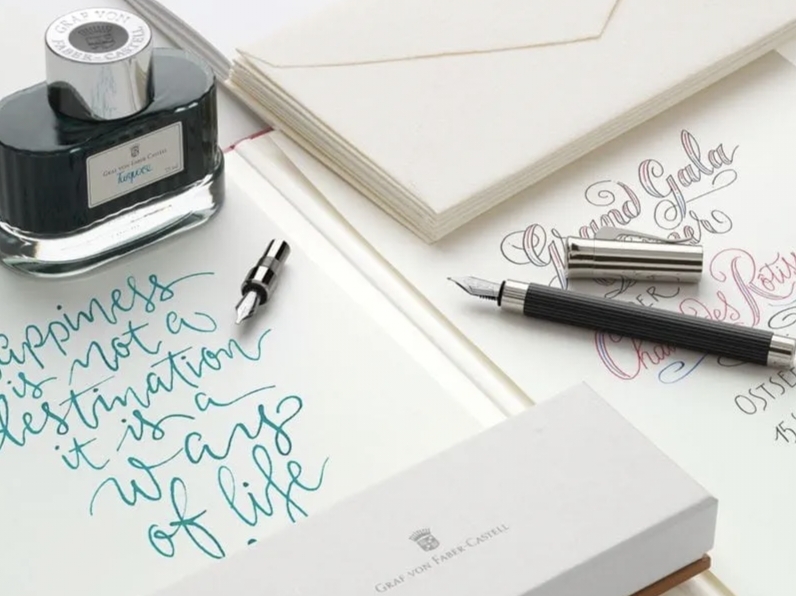 GRAF VON
FABER-CASTELL
GRAF VON FABER-CASTELL
happiness
is not a
destination
it is a
of life
Grand Gala
des Rôtis
OSTSEE
15
GRAF VON FABER-CASTELL